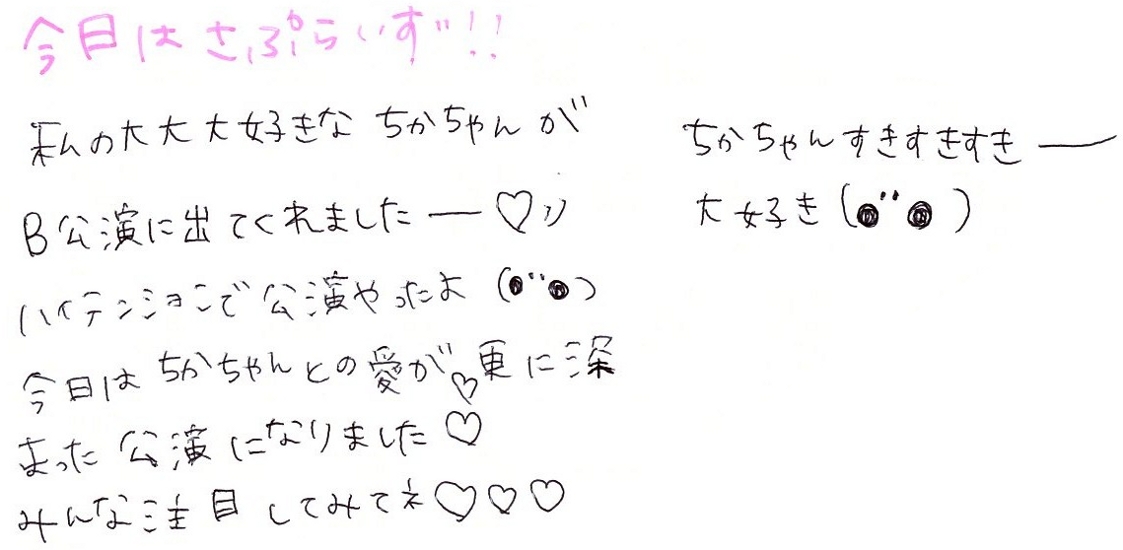 今日はさぷらいず!!
私の大大大好きなちかちゃんが
B公演に出てくれましたー♡))
ハイテンションで公演やったよ(◉¨◉)
今日はちかちゃんとの愛が♡更に深
まった公演になりました♡
みんな注目してみてネ♡♡♡
ちかちゃんすきすきすきー
大好き(◉¨◉)